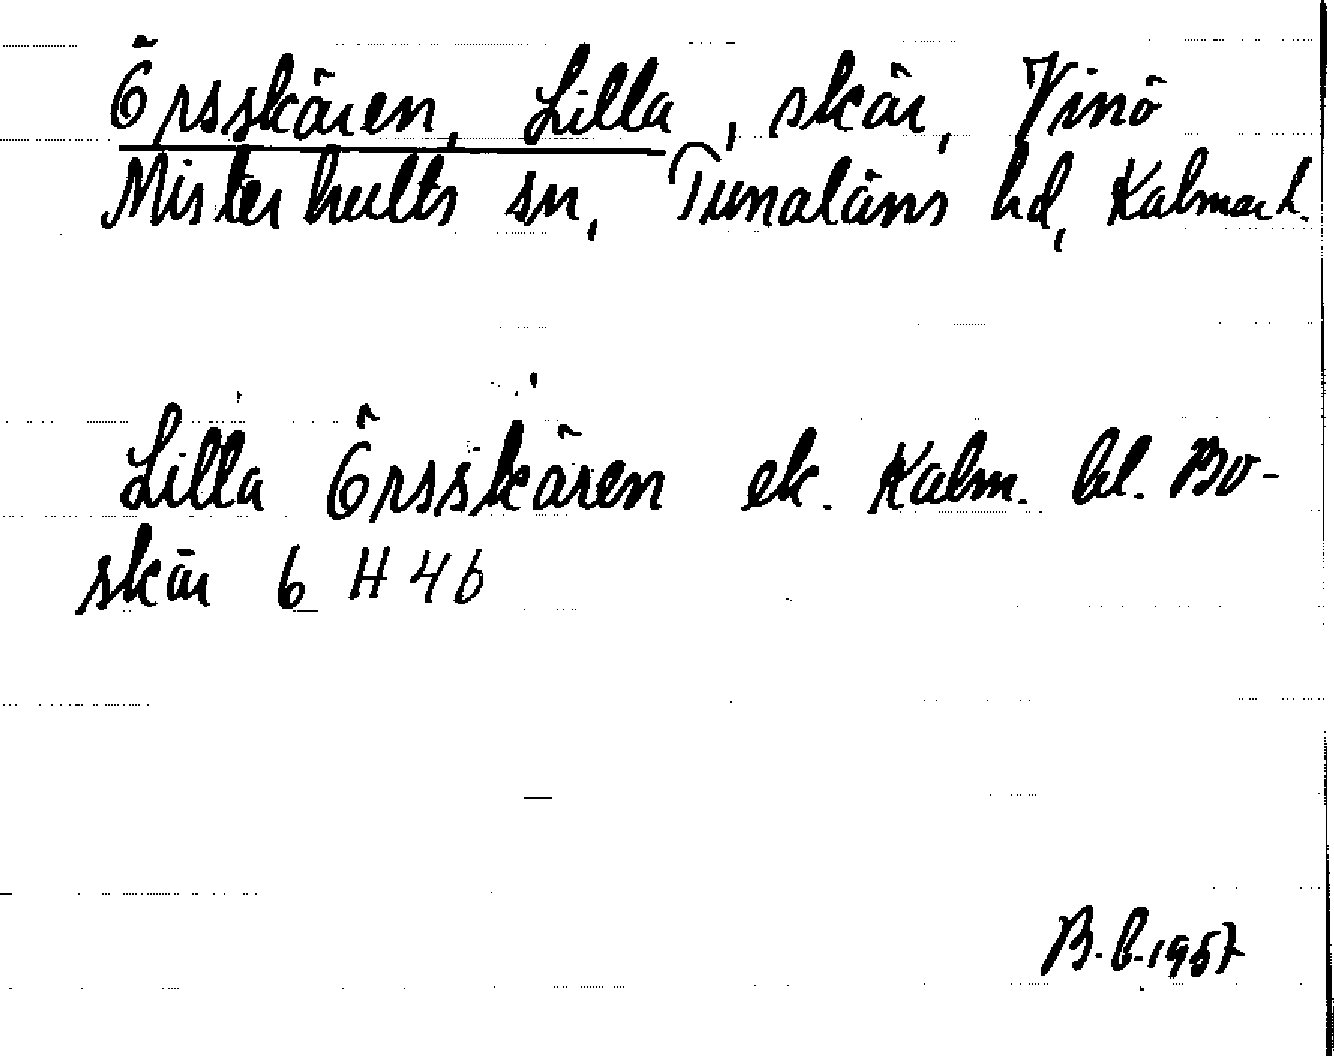 Örsskären, Lilla, skär, Vinö
Misterhults sn, Tunaläns hd, Kalmar l.
Lilla Örsskären ek. Kalm. bl. Bo-
skär 6 H 46
B.b.1957